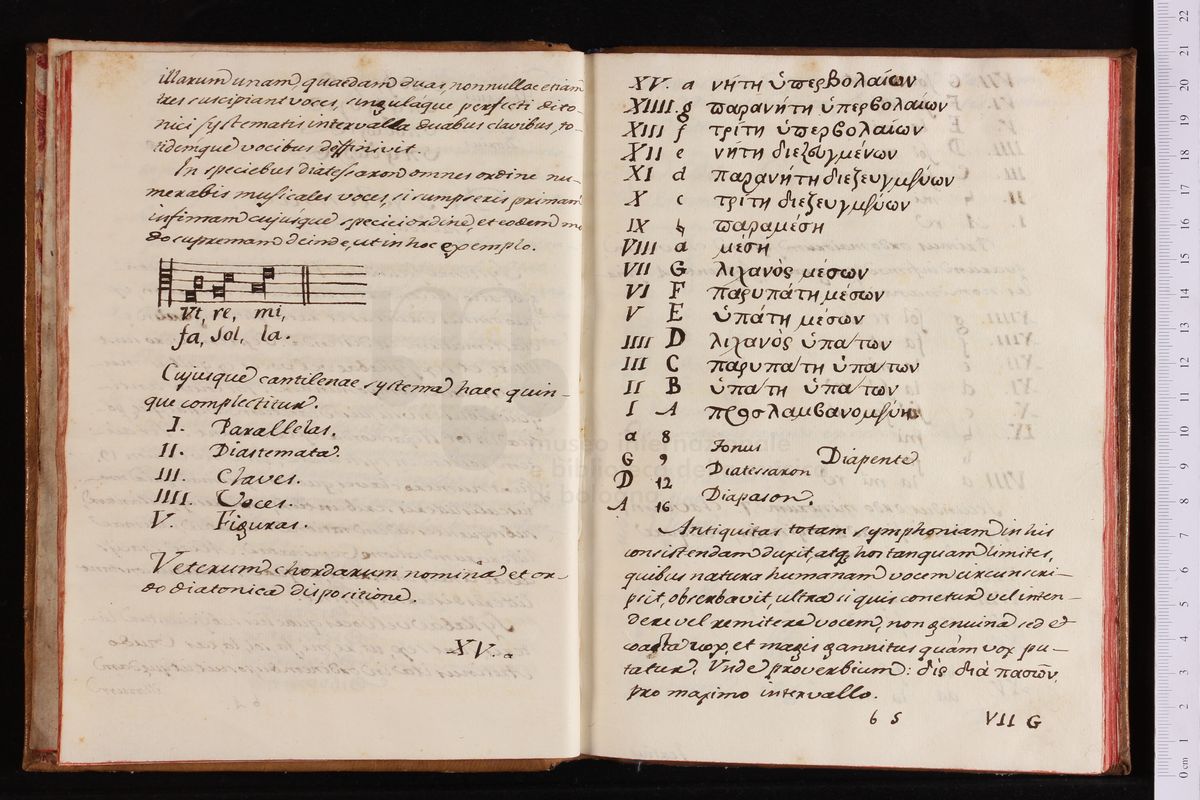 illarum unam, quaedam duas, nonnullae etiam
tres suscipiant voces, singulaque perfecti dito-
nici systematis intervalla duabus clavibus, to-
tidemque vocibus diffinivit.
In speciebus diatessaron omnes ordine nu-
merabis musicales voces, si sumpseris primam
infimam cujusque speciei ordine, et eodem mo
do supremam deinde, ut in hoc exemplo.
Vt, re, mi,
fa, sol, la.
Cujusque cantilenae systema haec quin-
que complectitur.
I. Parallelas.
II. Diastemata.
III. Claves.
IIII. Voces.
V. Figuras.
Veterum chordarum nomina et or-
do diatonica dispositione.
XV. a
XV. a νήτη ὑπερβολαίων
XIIII. g παρανήτη ὑπερβολαίων
XIII f τρίτη ὑπερβολαίων
XII e νήτη διεζευγμένων
XI d παρανήτη διεζευγμένων
X c τρίτη διεζευγμένων
IX ♮ παραμέση
VIII a μέση
VII G λιχανὸς μέσων
VI F παρυπάτη μέσων
V E ὑπάτη μέσων
IIII D λιχανὸς ὑπάτων
III C παρυπάτη ὑπάτων
II B ὑπάτη ὑπάτων
I A προσλαμβανομένη
a 8
Tonus
G 9 Diapente
Diatessaron
D 12
Diapason.
A 16
Antiquitas totam symphoniam in his
consistendam duxit, atq. hos tanquam limites,
quibus natura humanam vocem circunscri-
psit, observavit, ultra si quis conetur vel inten-
dere vel remittere vocem, non genuina sed et
vox, et magis gannitus quàm vox pu-
tatur. Vnde proverbium: δὶς διὰ πασῶν,
pro maximo intervallo.
6 5 VII G
museo internazionale
e biblioteca della musica
di bologna